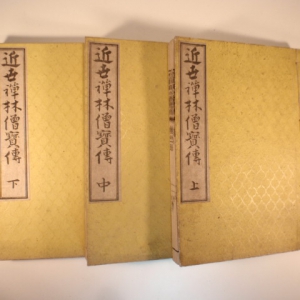 近世禪林僧寶傳 上
近世禪林僧寶傳 中
近世禪林僧寶傳 下